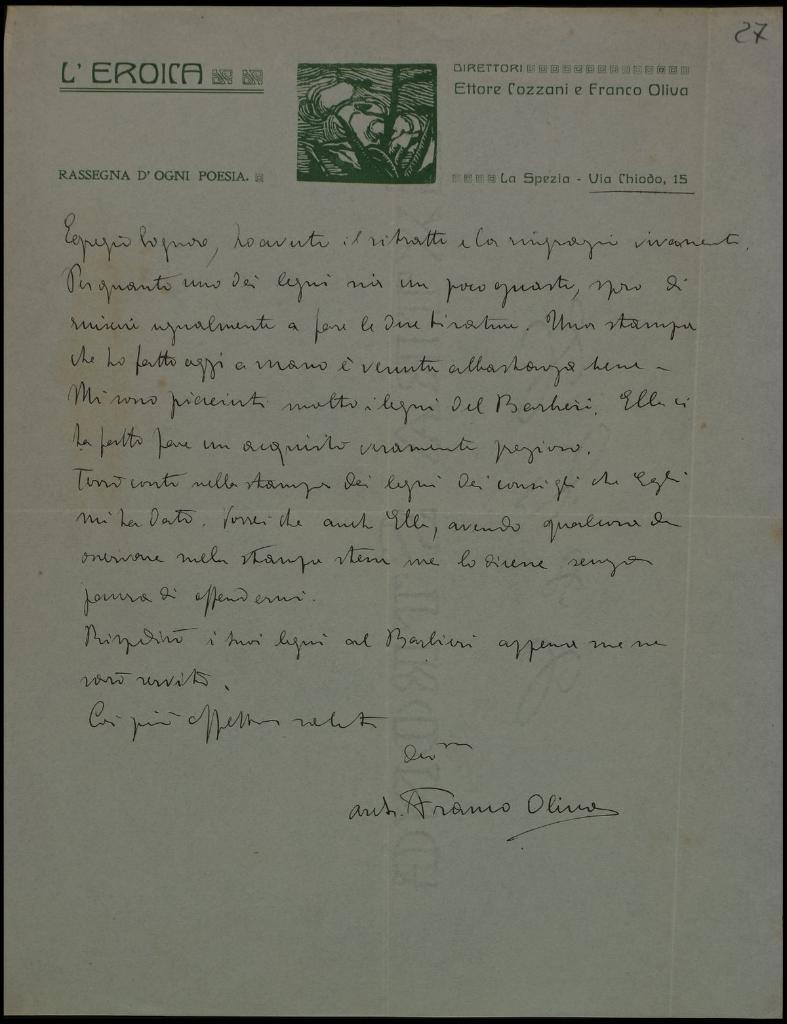 27
L'EROICA
DIRETTORI
Ettore Cozzani e Franco Oliva
RASSEGNA D'OGNI POESIA.
La Spezia - Via Chiodo, 15
Egregio Signore, ho avuto il ritratto e La ringrazio vivamente.
Per quanto uno dei legni sia un poco guasto, spero di
riuscire ugualmente a fare le due tirature. Una stampa
che ho fatto oggi a mano è venuta abbastanza bene -
Mi sono piaciuti molto i legni del Barbieri. Ella ci
ha fatto fare un acquisto veramente prezioso.
Terrò conto nella stampa dei legni dei consigli che Egli
mi ha dato. Vorrei che anche Ella, avendo qualcosa da
osservare nella stampa stessa me lo dicesse senza
paura di offendermi.
Rispedirò i suoi legni al Barbieri appena me ne
sarò servito.
Coi più affettuosi saluti
dev.mo
arch. Franco Oliva